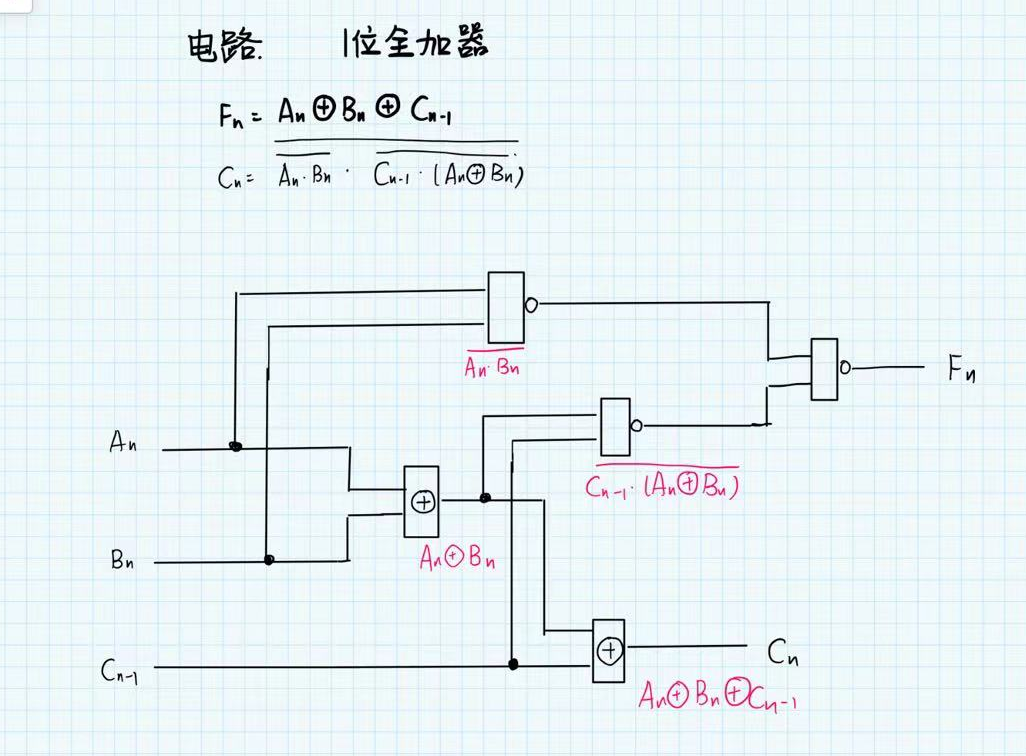 电路. 1位全加器
Fn = An ⊕ Bn ⊕ Cn-1
Cn = \overline{\overline{An·Bn} · \overline{Cn-1·(An⊕Bn)}}
\overline{An·Bn}
Fn
An
\overline{Cn-1·(An⊕Bn)}
⊕
Bn
An⊕Bn
Cn-1
⊕
Cn
An⊕Bn⊕Cn-1